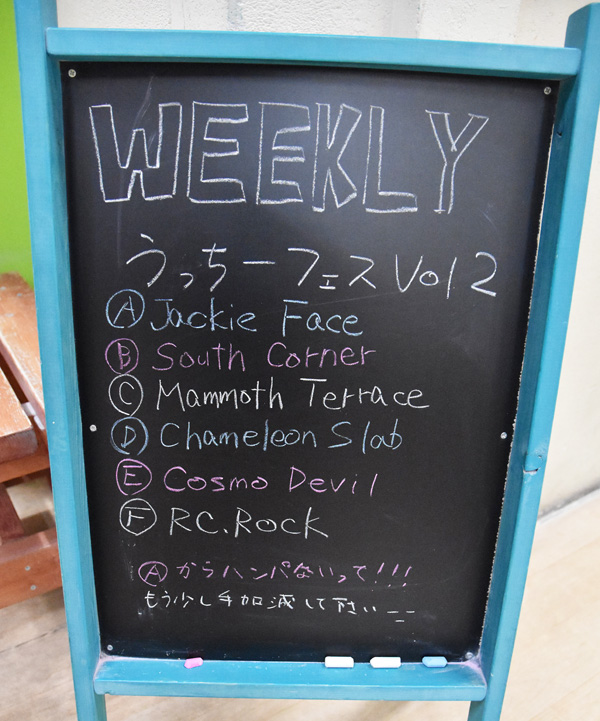 WEEKLY
うっちーフェス Vol 2
Ⓐ Jackie Face
Ⓑ South Corner
Ⓒ Mammoth Terrace
Ⓓ Chameleon Slab
Ⓔ Cosmo Devil
Ⓕ RC.Rock
Ⓐ からハンパないって!!!
もう少し手加減して下さい